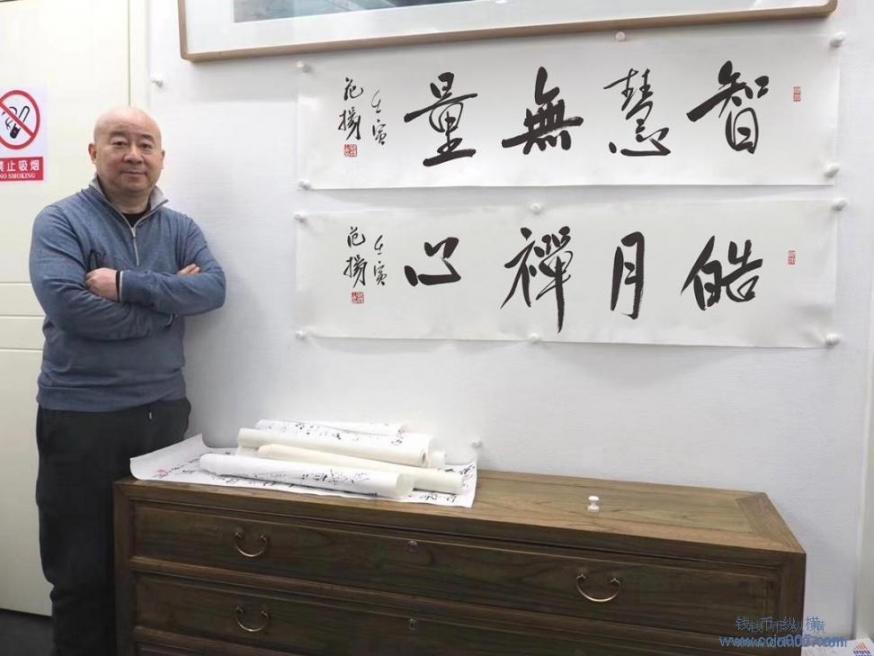 智慧無量
壬寅
范揚
皓月禪心
壬寅
范揚
禁止吸烟
NO SMOKING
钱币纵横